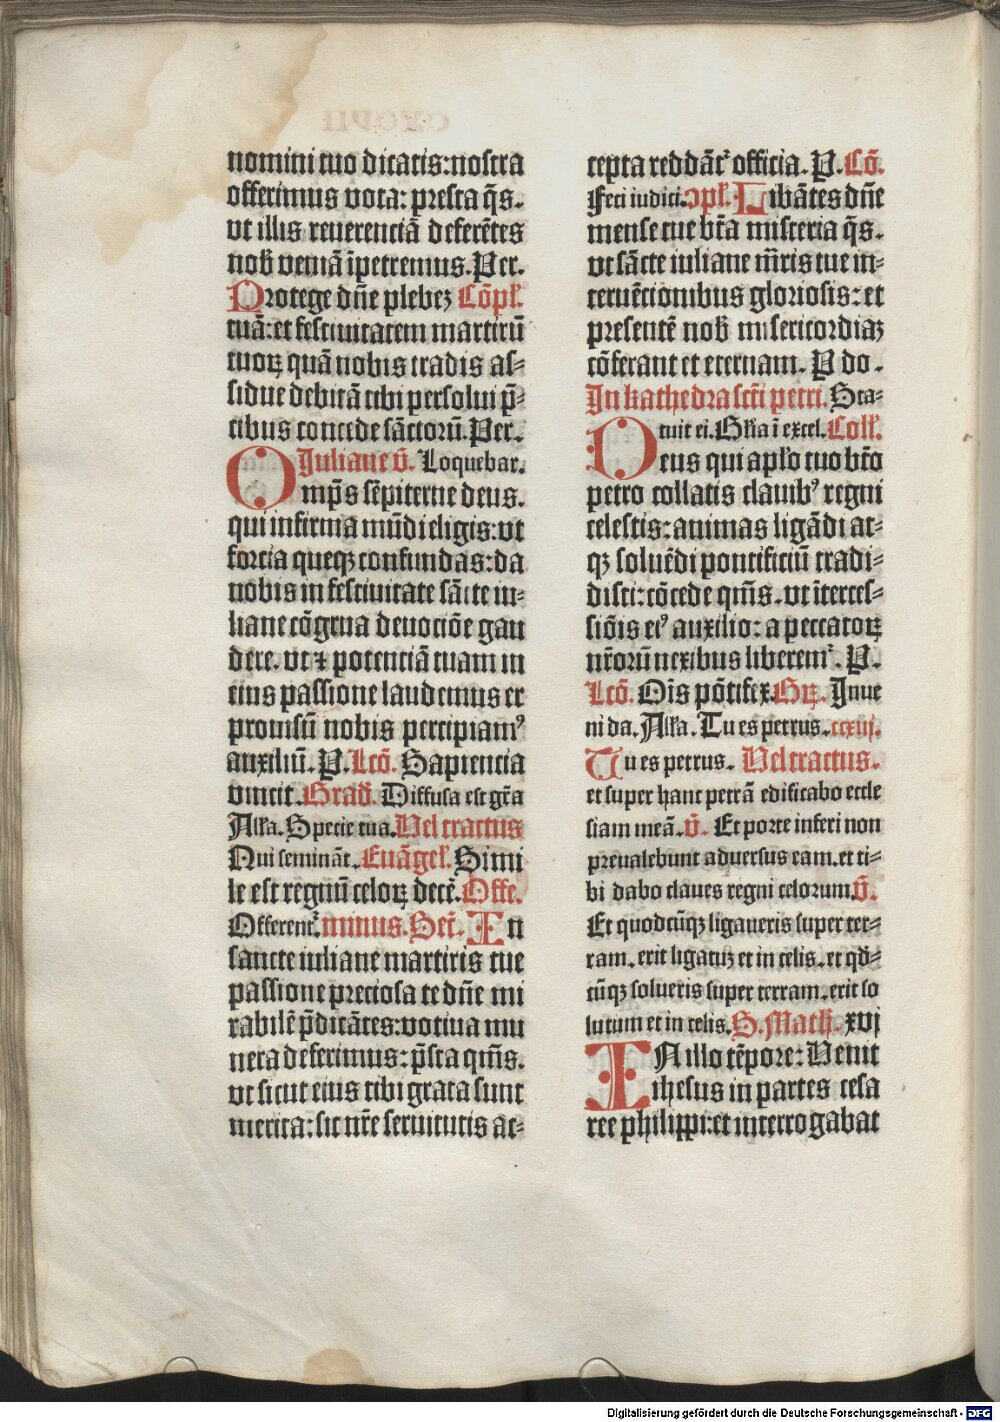 nomini tuo dicatis: nostra
offerimus vota: presta q̄s.
vt illis reuerenciā deferētes
nob̄ veniā īpetremus. Per.
Protege dn̄e plebeꝫ Cōpl̄.
tuā: et festiuitatem martirū
tuoꝝ quā nobis tradis as⸗
sidue debitā tibi persolui p̄
cibus concede sāctorū. Per.
Juliane v̄. Loquebar.
Omp̄s sēpiterne deus.
qui infirma mūdi eligis: vt
forcia queqꝫ confundas: da
nobis in festiuitate sācte iu⸗
liane cōgrua deuociōe gau
dere. vt ⁊ potenciā tuam in
eius passione laudemus et
promisū nobis percipiamꝰ
auxiliū. P. Lcō. Sapiencia
vincit. Grad̄. Diffusa est gr̄a
All̄a. Specie tua. Vel tractus
Qui semināt. Euāgel̄. Simi
le est regnū celoꝝ decē. Offe.
Offerentᷣ. minus. Secr̄. In
sancte iuliane martiris tue
passione preciosa te dn̄e mi
rabilē p̄dicātes: votiua mu
nera deferimus: p̄sta qm̄s.
vt sicut eius tibi grata sunt
merita: sic nr̄e seruitutis ac⸗
cepta reddātᷣ officia. P. Cō.
Feci iudici. ɔpl̄. Libātes dn̄e
mense tue bt̄a misteria q̄s.
vt sācte iuliane m̄ris tue in⸗
teruēcionibus gloriosis: et
presentē nob̄ misericordiaꝫ
cōferant et eternam. P do.
In kathedra sct̄i petri. Sta⸗
tuit ei. Gl̄ia ī excel. Coll̄.
Deus qui apl̄o tuo bt̄o
petro collatis clauibꝰ regni
celestis: animas ligādi at⸗
qꝫ soluēdi pontificiū tradi⸗
disti: cōcede qm̄s. vt īterces⸗
siōis eiꝰ auxilio: a peccatoꝝ
nr̄orū nexibus liberemᷣ. P.
Lcō. Oīs pōtifex. Gꝝ. Inue
ni da. All̄a. Tu es petrus. ccxiij.
Tu es petrus. Vel tractus.
et super hanc petrā edificabo eccle
siam meā. v̄. Et porte inferi non
preualebunt aduersus eam. et ti⸗
bi dabo claues regni celorum. v̄.
Et quodcūqꝫ ligaueris super ter⸗
ram. erit ligatuꝫ et in celis. et qd̄⸗
cūqꝫ solueris super terram. erit so
lutum et in celis. S. Math. xvj
IN illo tēpore: Venit
ihesus in partes cesa
ree philippi: et interrogabat
Digitalisierung gefördert durch die Deutsche Forschungsgemeinschaft - DFG